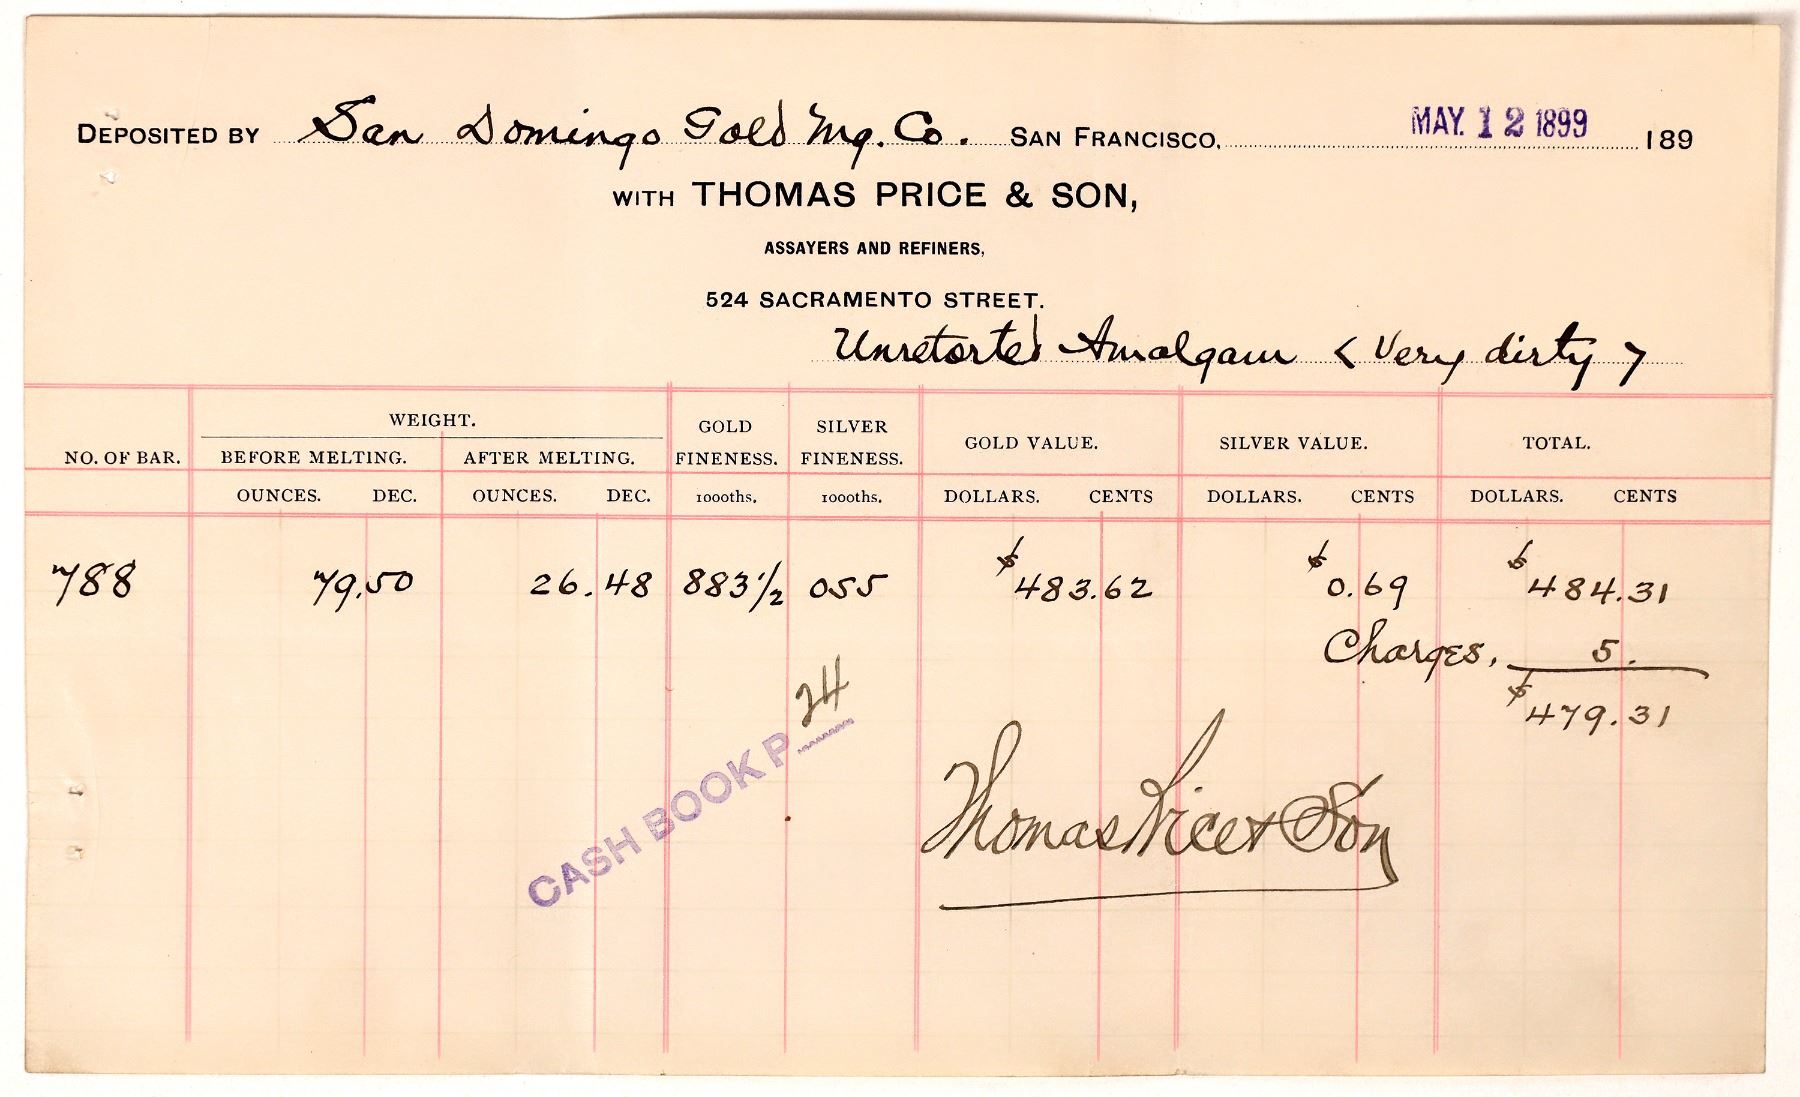 DEPOSITED BY San Domingo Gold Mg. Co. SAN FRANCISCO, MAY. 12 1899 189
WITH THOMAS PRICE & SON,
ASSAYERS AND REFINERS,
524 SACRAMENTO STREET.
Unretorted Amalgam < Very dirty >
NO. OF BAR. WEIGHT. GOLD FINENESS. SILVER FINENESS. GOLD VALUE. SILVER VALUE. TOTAL.
BEFORE MELTING. AFTER MELTING.
OUNCES. DEC. OUNCES. DEC. 1000ths. 1000ths. DOLLARS. CENTS DOLLARS. CENTS DOLLARS. CENTS
788 79.50 26.48 883 1/2 055 $483.62 $0.69 $484.31
Charges. 5.
$479.31
CASH BOOK P. 24
Thomas Price & Son